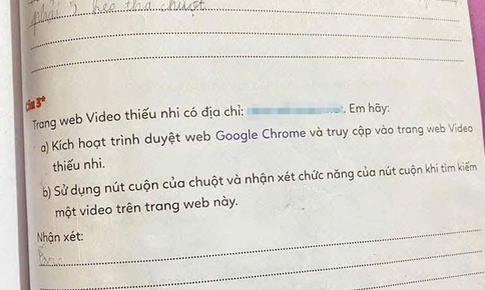 phải 5 hee tha chuột
Câu 3*
Trang web Video thiếu nhi có địa chỉ: . Em hãy:
a) Kích hoạt trình duyệt web Google Chrome và truy cập vào trang web Video
thiếu nhi.
b) Sử dụng nút cuộn của chuột và nhận xét chức năng của nút cuộn khi tìm kiếm
một video trên trang web này.
Nhận xét: